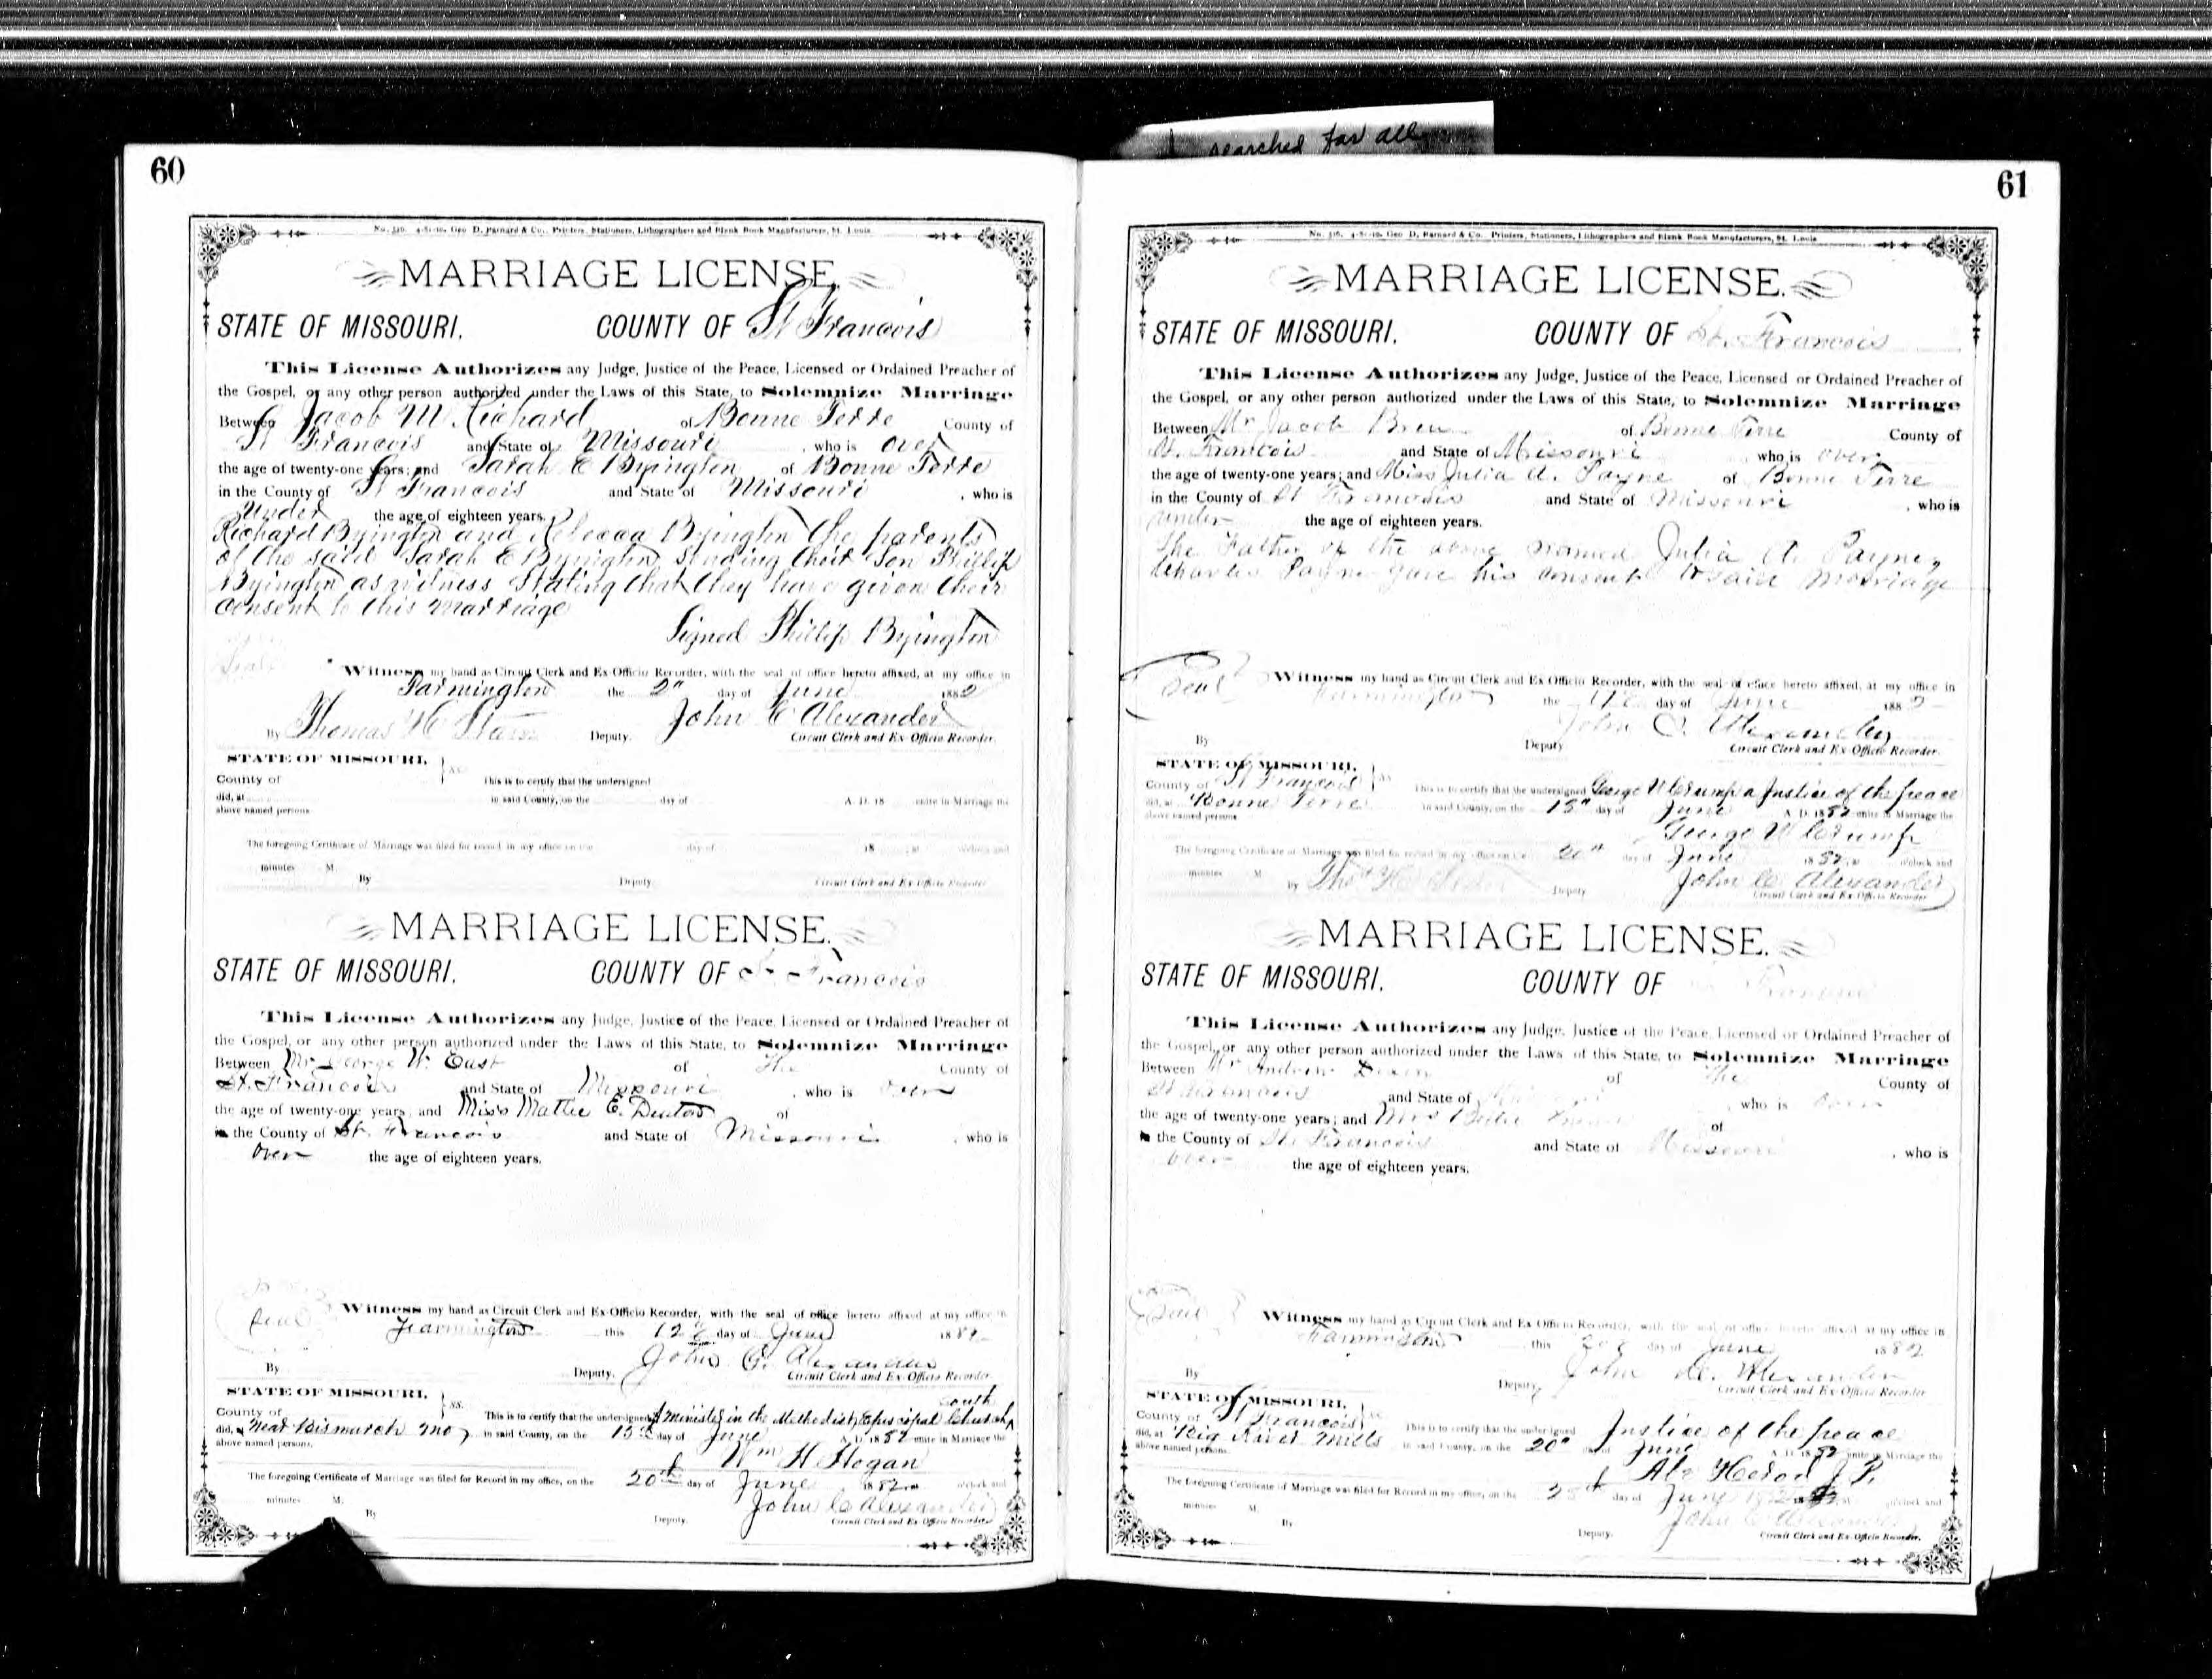 searched for all
60
No. 516. 4-81-10. Geo D. Barnard & Co., Printers, Stationers, Lithographers and Blank Book Manufacturers, St. Louis
MARRIAGE LICENSE.
STATE OF MISSOURI. COUNTY OF St Francois
This License Authorizes any Judge, Justice of the Peace, Licensed or Ordained Preacher of
the Gospel, or any other person authorized under the Laws of this State, to Solemnize Marriage
Between Jacob M Richard of Bonne Terre County of
St Francois and State of Missouri, who is over
the age of twenty-one years; and Sarah E Byington of Bonne Terre
in the County of St Francois and State of Missouri, who is
Under the age of eighteen years.
Richard Byington and Rebecca Byington the parents
of the said Sarah E Byington, Sending their Son Phillip
Byington as witness Stating that they have given their
consent to this marriage
Signed Phillip Byington
Seal
Witness my hand as Circuit Clerk and Ex-Officio Recorder, with the seal of office hereto affixed, at my office in
Farmington the 2" day of June 1882
John C Alexander
By Thomas H Deputy. Circuit Clerk and Ex-Officio Recorder.
STATE OF MISSOURI, } ss.
County of This is to certify that the undersigned
did, at in said County, on the day of A. D. 18 unite in Marriage the
above named persons
The foregoing Certificate of Marriage was filed for record in my office on the day of 18 at o'clock and
minutes M.
By Deputy Circuit Clerk and Ex-Officio Recorder
MARRIAGE LICENSE.
STATE OF MISSOURI. COUNTY OF St Francois
This License Authorizes any Judge, Justice of the Peace, Licensed or Ordained Preacher of
the Gospel, or any other person authorized under the Laws of this State, to Solemnize Marriage
Between Mr George W. East of the County of
St. Francois and State of Missouri, who is over
the age of twenty-one years; and Miss Mattie E. Denton of
in the County of St. Francois and State of Missouri, who is
over the age of eighteen years.
Seal
Witness my hand as Circuit Clerk and Ex-Officio Recorder, with the seal of office hereto affixed at my office in
Farmington this 12 day of June 1882
John C. Alexander
By Deputy. Circuit Clerk and Ex-Officio Recorder
STATE OF MISSOURI, } ss. South
County of This is to certify that the undersigned A Minister in the Methodist Episcopal Church
did, at Near Bismarck Mo, in said County, on the 15 day of June A. D. 1882 unite in Marriage the
above named persons.
Wm H Hogan
The foregoing Certificate of Marriage was filed for Record in my office, on the 20th day of June 1882 at o'clock and
minutes M. John C Alexander
By Deputy. Circuit Clerk and Ex-Officio Recorder
61
No. 516. 4-81-10. Geo D. Barnard & Co., Printers, Stationers, Lithographers and Blank Book Manufacturers, St. Louis
MARRIAGE LICENSE.
STATE OF MISSOURI. COUNTY OF St. Francois
This License Authorizes any Judge, Justice of the Peace, Licensed or Ordained Preacher of
the Gospel, or any other person authorized under the Laws of this State, to Solemnize Marriage
Between Mr Jacob of Bonne Terre County of
St. Francois and State of Missouri who is over
the age of twenty-one years; and Miss Julia A. Payne of Bonne Terre
in the County of St Francois and State of Missouri, who is
under the age of eighteen years.
The Father of the above named Julia A. Payne,
Charles Payne gave his consent to said marriage
Seal
Witness my hand as Circuit Clerk and Ex Officio Recorder, with the seal of office hereto affixed, at my office in
Farmington the day of June 1882
John C. Alexander
By Deputy Circuit Clerk and Ex-Officio Recorder.
STATE OF MISSOURI, } ss
County of St Francois This is to certify that the undersigned George W Crump a Justice of the peace
did, at Bonne Terre in said County, on the 15" day of June A. D. 1882 unite in Marriage the
above named persons
George W Crump
The foregoing Certificate of Marriage was filed for record in my office on the 20" day of June 1882 at o'clock and
minutes M John C Alexander
by Thos H Deputy Circuit Clerk and Ex-Officio Recorder
MARRIAGE LICENSE.
STATE OF MISSOURI. COUNTY OF Francois
This License Authorizes any Judge, Justice of the Peace, Licensed or Ordained Preacher of
the Gospel, or any other person authorized under the Laws of this State, to Solemnize Marriage
Between Mr Andrew of the County of
St Francois and State of , who is over
the age of twenty-one years; and of
in the County of St. Francois and State of Missouri, who is
over the age of eighteen years.
Seal
Witness my hand as Circuit Clerk and Ex Officio Recorder, with the seal of office hereto affixed at my office in
Farmington this day of June 1882
John C. Alexander
By Deputy Circuit Clerk and Ex-Officio Recorder
STATE OF MISSOURI,
County of St Francois This is to certify that the undersigned Justice of the peace
did, at Big River Mills in said County, on the 20" day of June A. D. 1882 unite in Marriage the
above named persons.
J P.
The foregoing Certificate of Marriage was filed for Record in my office, on the day of June 1882 at o'clock and
minutes M. John C Alexander
By Deputy. Circuit Clerk and Ex-Officio Recorder.